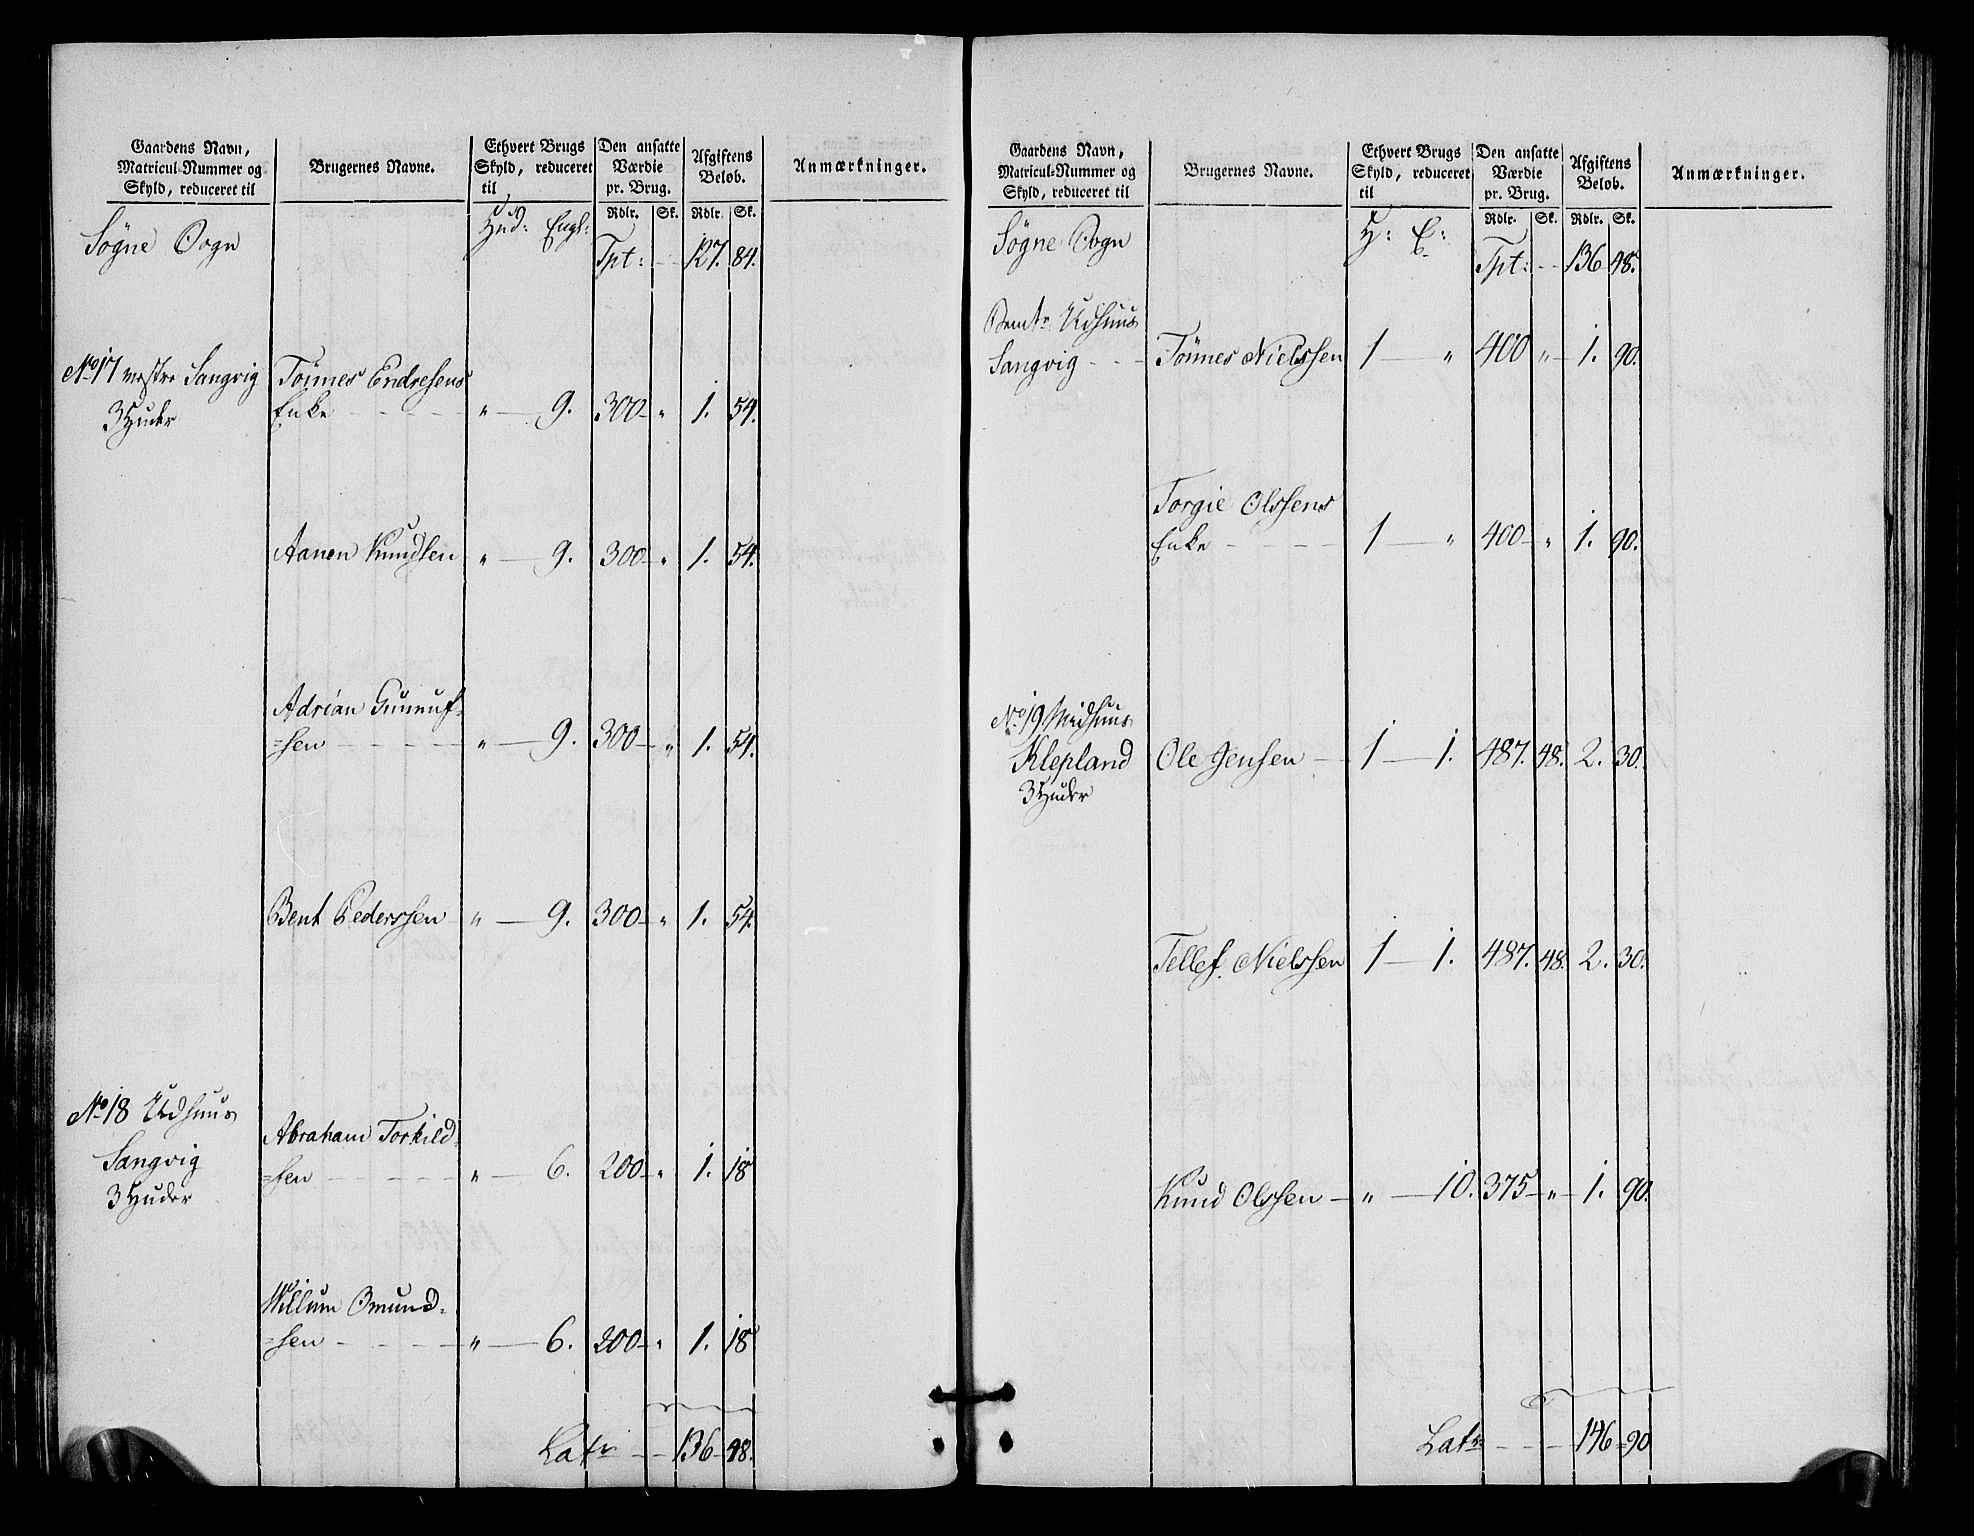 Gaardens Navn,
Matricul-Nummer og
Skyld, reduceret til
Brugernes Navne.
Ethvert Brugs
Skyld, reduceret
til
Den ansatte
Værdie
pr. Brug.
Afgiftens
Beløb.
Anmærkninger.
Rdlr. Sk. Rdlr. Sk.
Søgne Sogn Hud: Engl:
Tpt: - - 127. 84.
No 17 vestre Sangvig Tönnes Endresens
3 Huder Enke - - - - " — 9. 300 — " 1. 54.
Aanen Knudsen " — 9. 300 — " 1. 54.
Adrian Gunnuf=
=sen - - - - " — 9. 300 — " 1. 54.
Bent Pederssen " — 9. 300 — " 1. 54.
No 18 Udhuus
Sangvig Abraham Torkild=
3 Huder =sen - - - - " — 6. 200 — " 1. 18
Willum Omund=
=sen - - - - " — 6. 200 — " 1. 18
Latr - - 136 - 48.
Gaardens Navn,
Matricul-Nummer og
Skyld, reduceret til
Brugernes Navne.
Ethvert Brugs
Skyld, reduceret
til
Den ansatte
Værdie
pr. Brug.
Afgiftens
Beløb.
Anmærkninger.
Rdlr. Sk. Rdlr. Sk.
Søgne Sogn H: E:
Tpt: - - 136 48.
Bemte Udhuus
Sangvig - - - Tönnes Nielssen 1 — " 400 " — 1. 90.
Torgie Olssens
Enke - - - - 1 — " 400 — " 1. 90.
No 19 Midhuus
Klepland Ole Jensen - - 1 — 1. 487. 48. 2. 30.
3 Huder
Tellef Nielssen 1 — 1. 487. 48. 2. 30.
Knud Olssen — " — 10. 375 — " — 1. 90.
Latr - - - 146 = 90